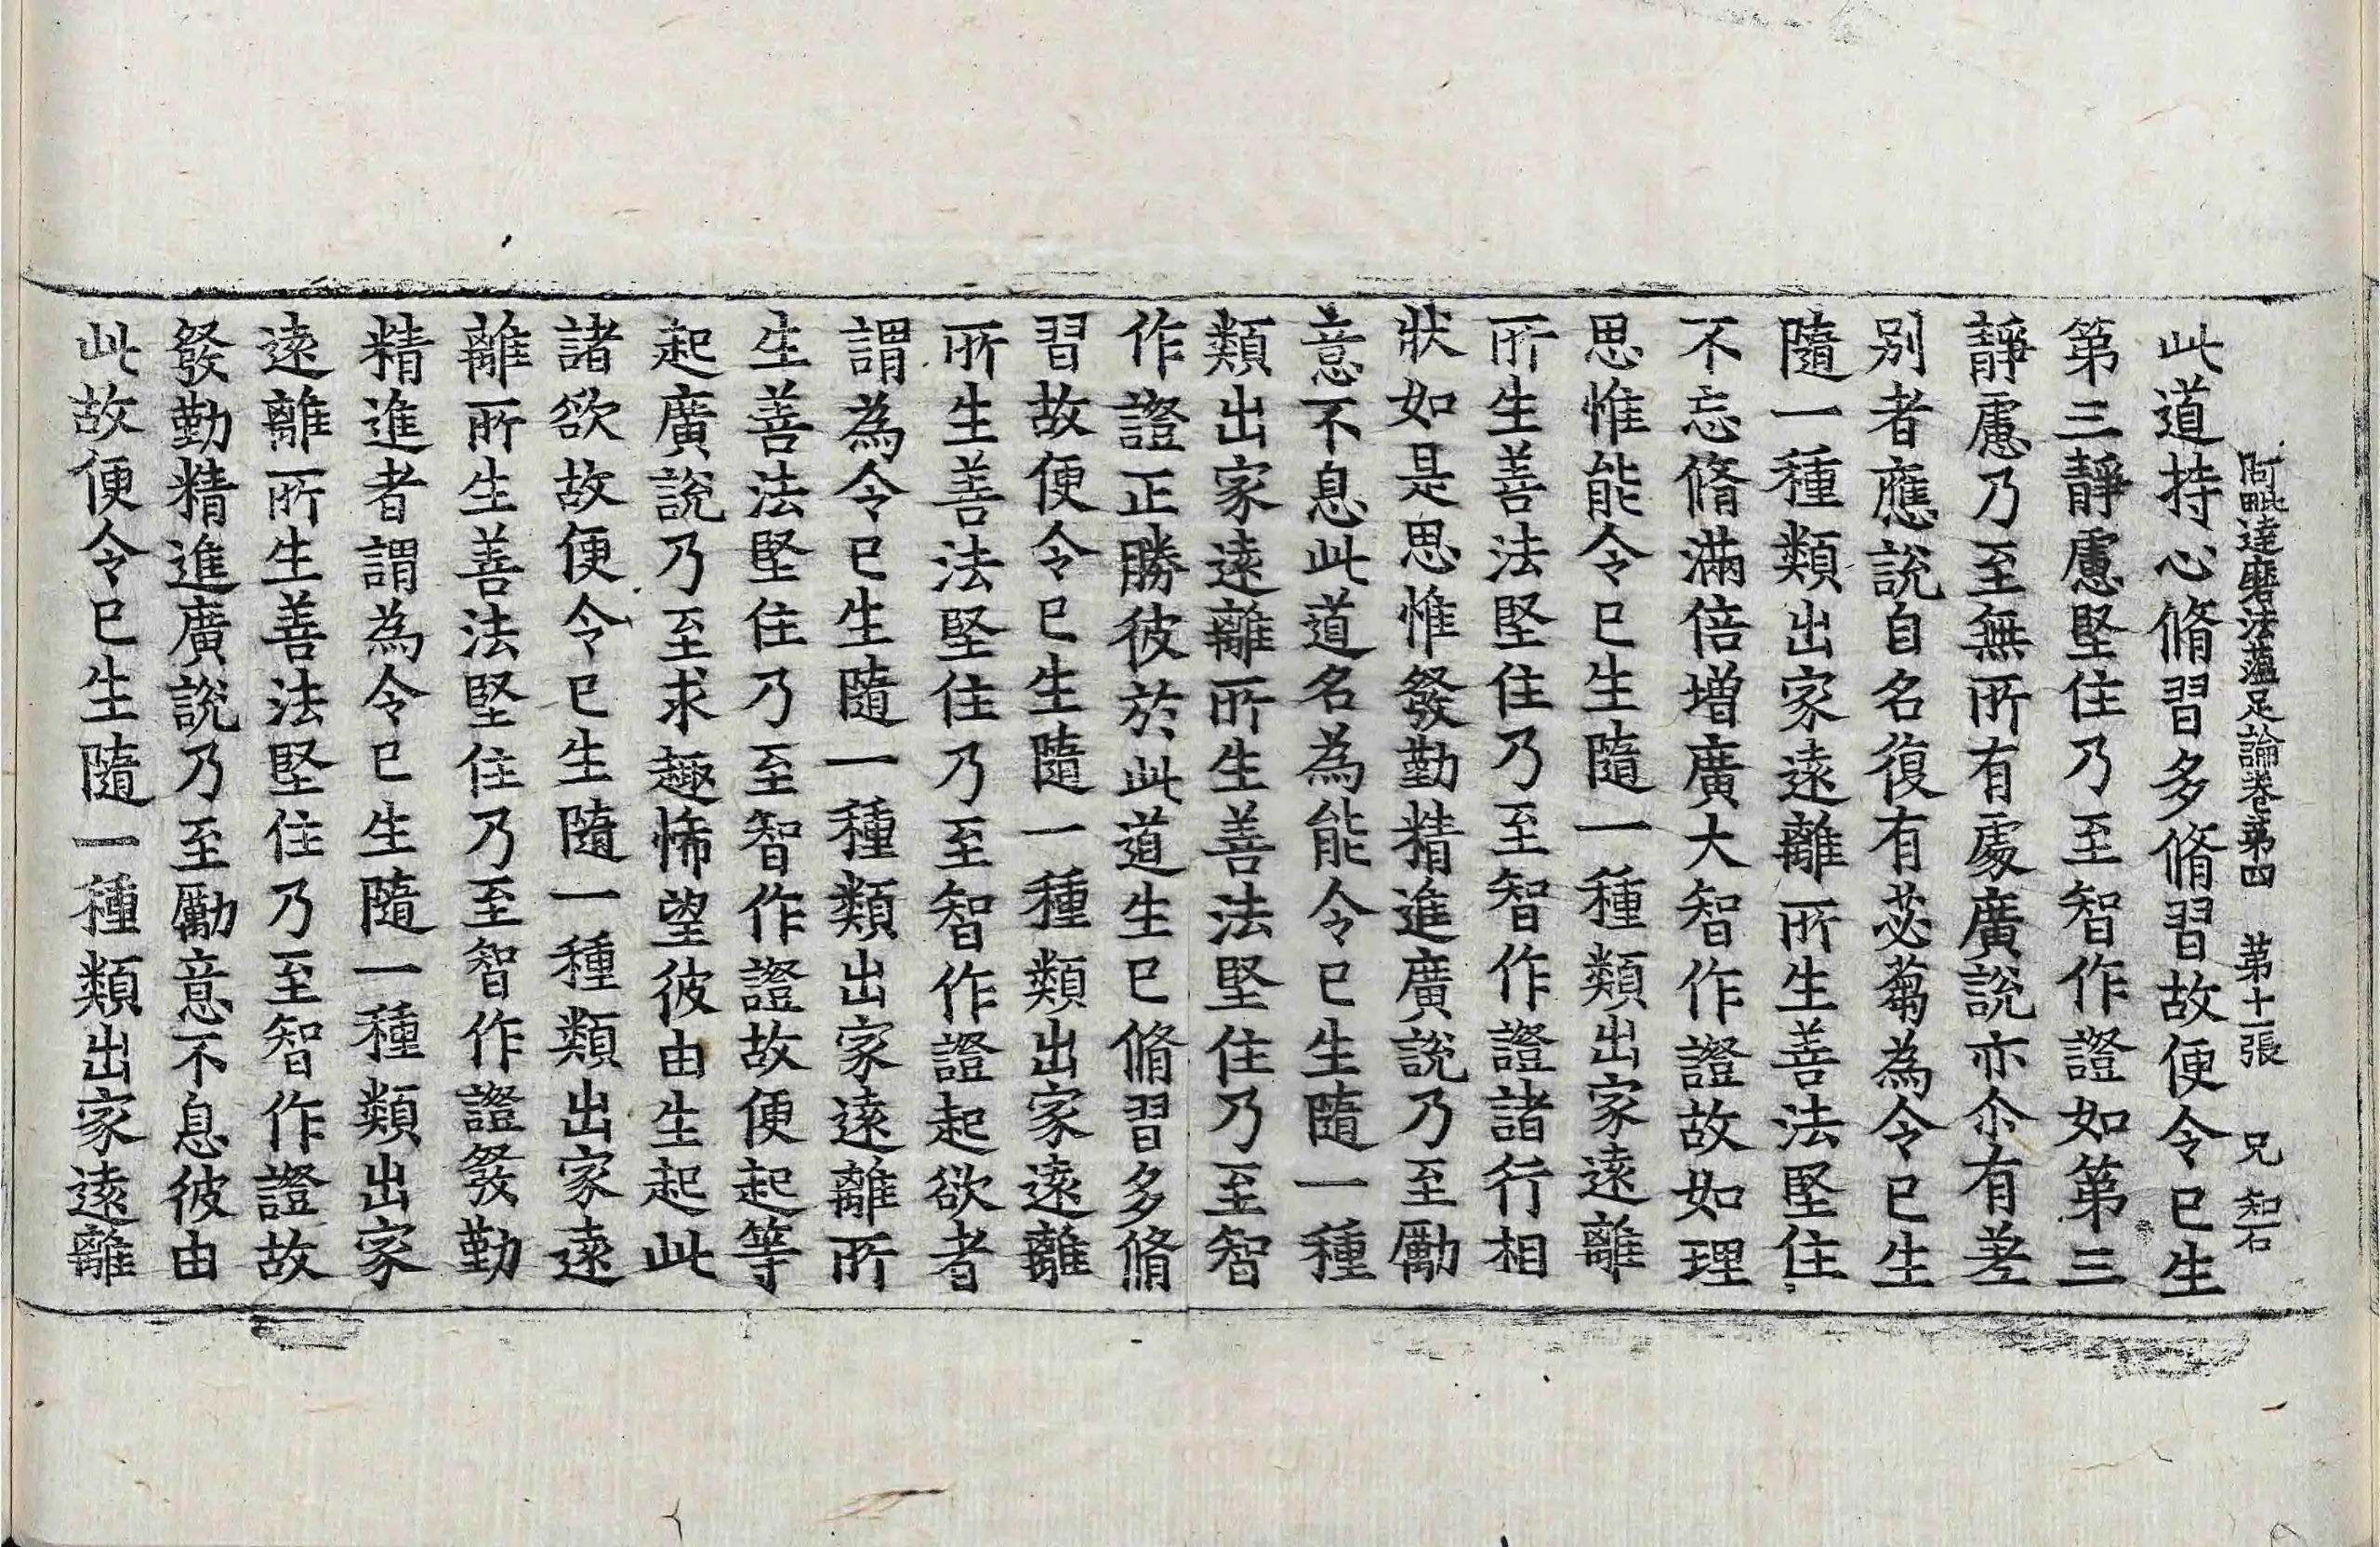 阿毗達磨法蘊足論卷第四　第十一張　兄　智石
此道持心脩習多脩習故便令已生
第三靜慮堅住乃至智作證如第三
靜慮乃至無所有處廣說亦尒有差
別者應說自名復有苾蒭為令已生
隨一種類出家遠離所生善法堅住
不忘脩滿倍增廣大智作證故如理
思惟能令已生隨一種類出家遠離
所生善法堅住乃至智作證諸行相
狀如是思惟發勤精進廣說乃至勵
意不息此道名為能令已生隨一種
類出家遠離所生善法堅住乃至智
作證正勝彼於此道生已脩習多脩
習故便令已生隨一種類出家遠離
所生善法堅住乃至智作證起欲者
謂為令已生隨一種類出家遠離所
生善法堅住乃至智作證故便起等
起廣說乃至求趣悕望彼由生起此
諸欲故便令已生隨一種類出家遠
離所生善法堅住乃至智作證發勤
精進者謂為令已生隨一種類出家
遠離所生善法堅住乃至智作證故
發勤精進廣說乃至勵意不息彼由
此故便令已生隨一種類出家遠離